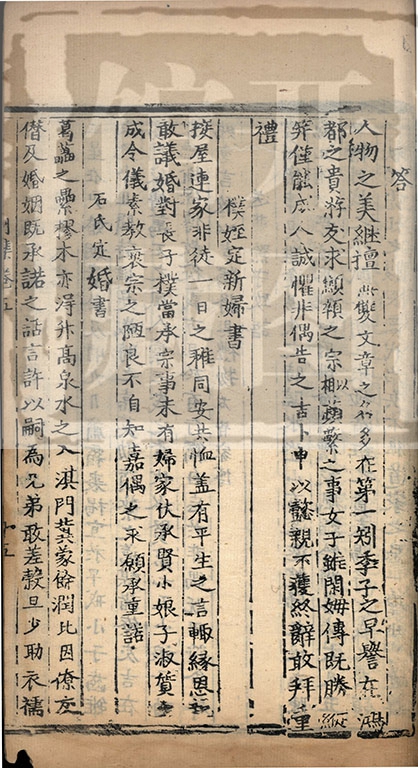 答
人物之美繼擅無雙文章之名多在第一矧季子之早譽在鴻
都之貴將交求顯類之宗相以蘋蘩之事女子雖閑姆傳既勝縰
笄僅能成人誠懼非偶告之吉卜申以懿親不獲終辭敢拜重
禮
樸姪定新婦書
接屋連家非徒一日之雅同安共恤蓋有平生之言輙緣恩
敢議婚對長子樸當承宗事未有婦家伏承賢小娘子淑質
成令儀素教衰宗之陋良不自知嘉偶之求願承重諾
石氏定婚書
葛藟之纍樛木亦得升高泉水之入淇門冀蒙餘潤比因僚友
僭及婚姻既承諾之話言許以嗣為兄弟敢差穀旦少助衣襦
集卷五